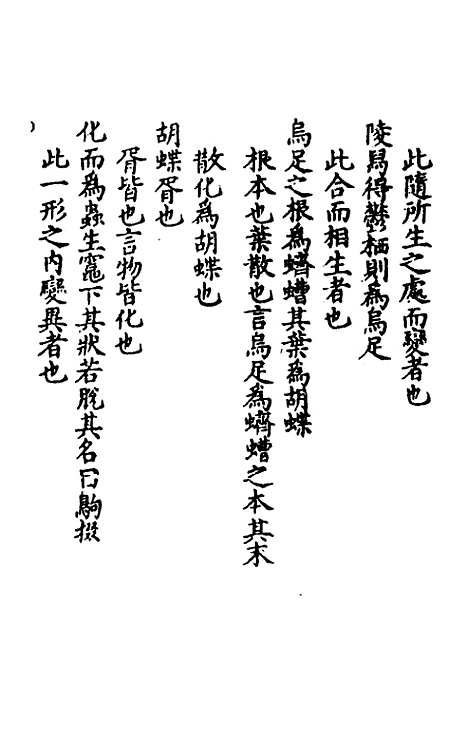 此隨所生之處而變者也
陵舃得鬱栖則為烏足
此合而相生者也
烏足之根為蠐螬其葉為胡蝶
根本也葉散也言烏足為蠐螬之本其末
散化為胡蝶也
胡蝶胥也
胥皆也言物皆化也
化而為蟲生竈下其狀若脫其名曰鴝掇
此一形之内變異者也